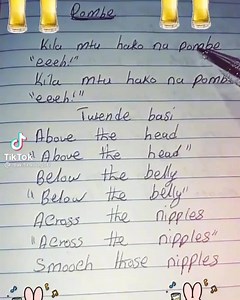 Pombe
Kila mtu hako na pombe
"eeeh!"
Kila mtu hako na pombe
"eeeh!"
Twende basi
Above the head
Above the head"
Below the belly
"Below the belly"
Across the nipples
"Across the nipples"
Smooch those nipples
TikTok